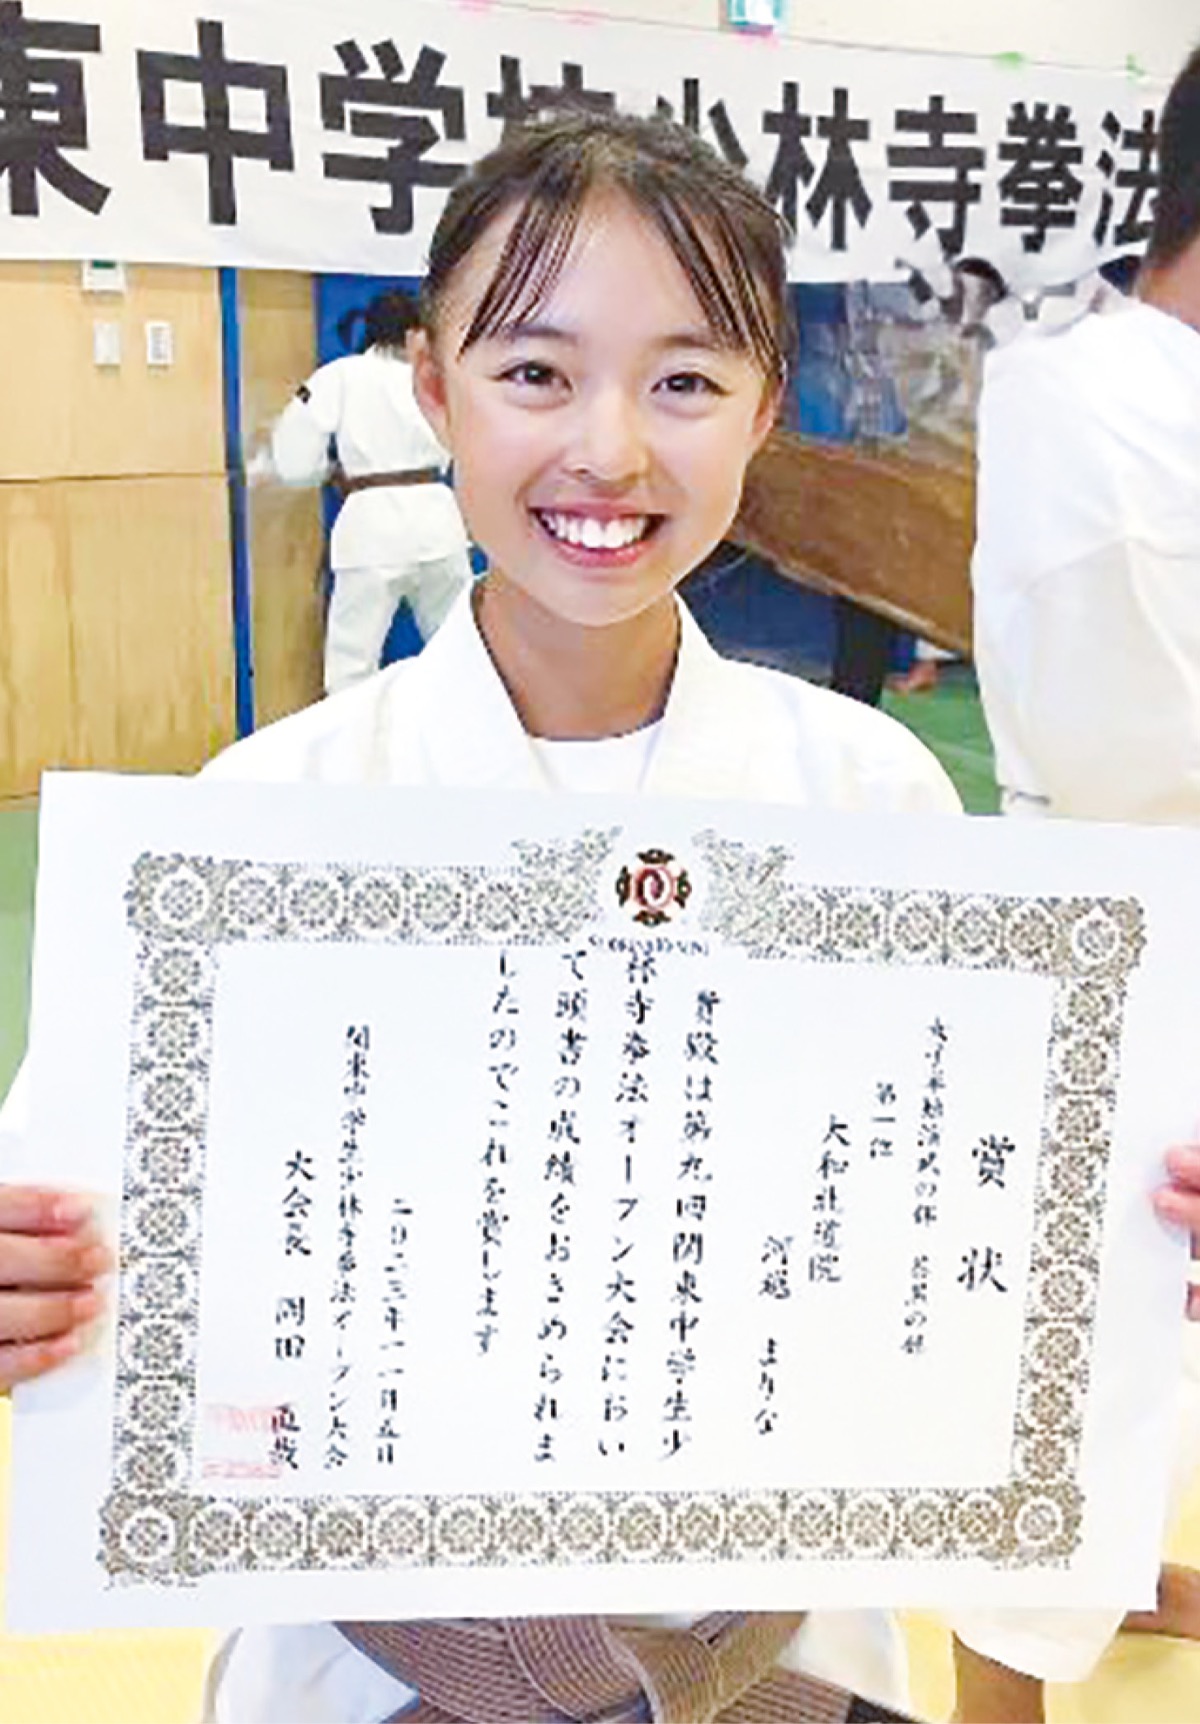 東中学校少林寺拳法
賞状
女子単独演武の部
第一位
大和北道院
まりな
貴殿は第九回関東中学生少
林寺拳法オープン大会におい
て頭書の成績をおさめられま
したのでこれを賞します
二〇二三年一一月五日
関東中学生少林寺拳法オープン大会
大会長